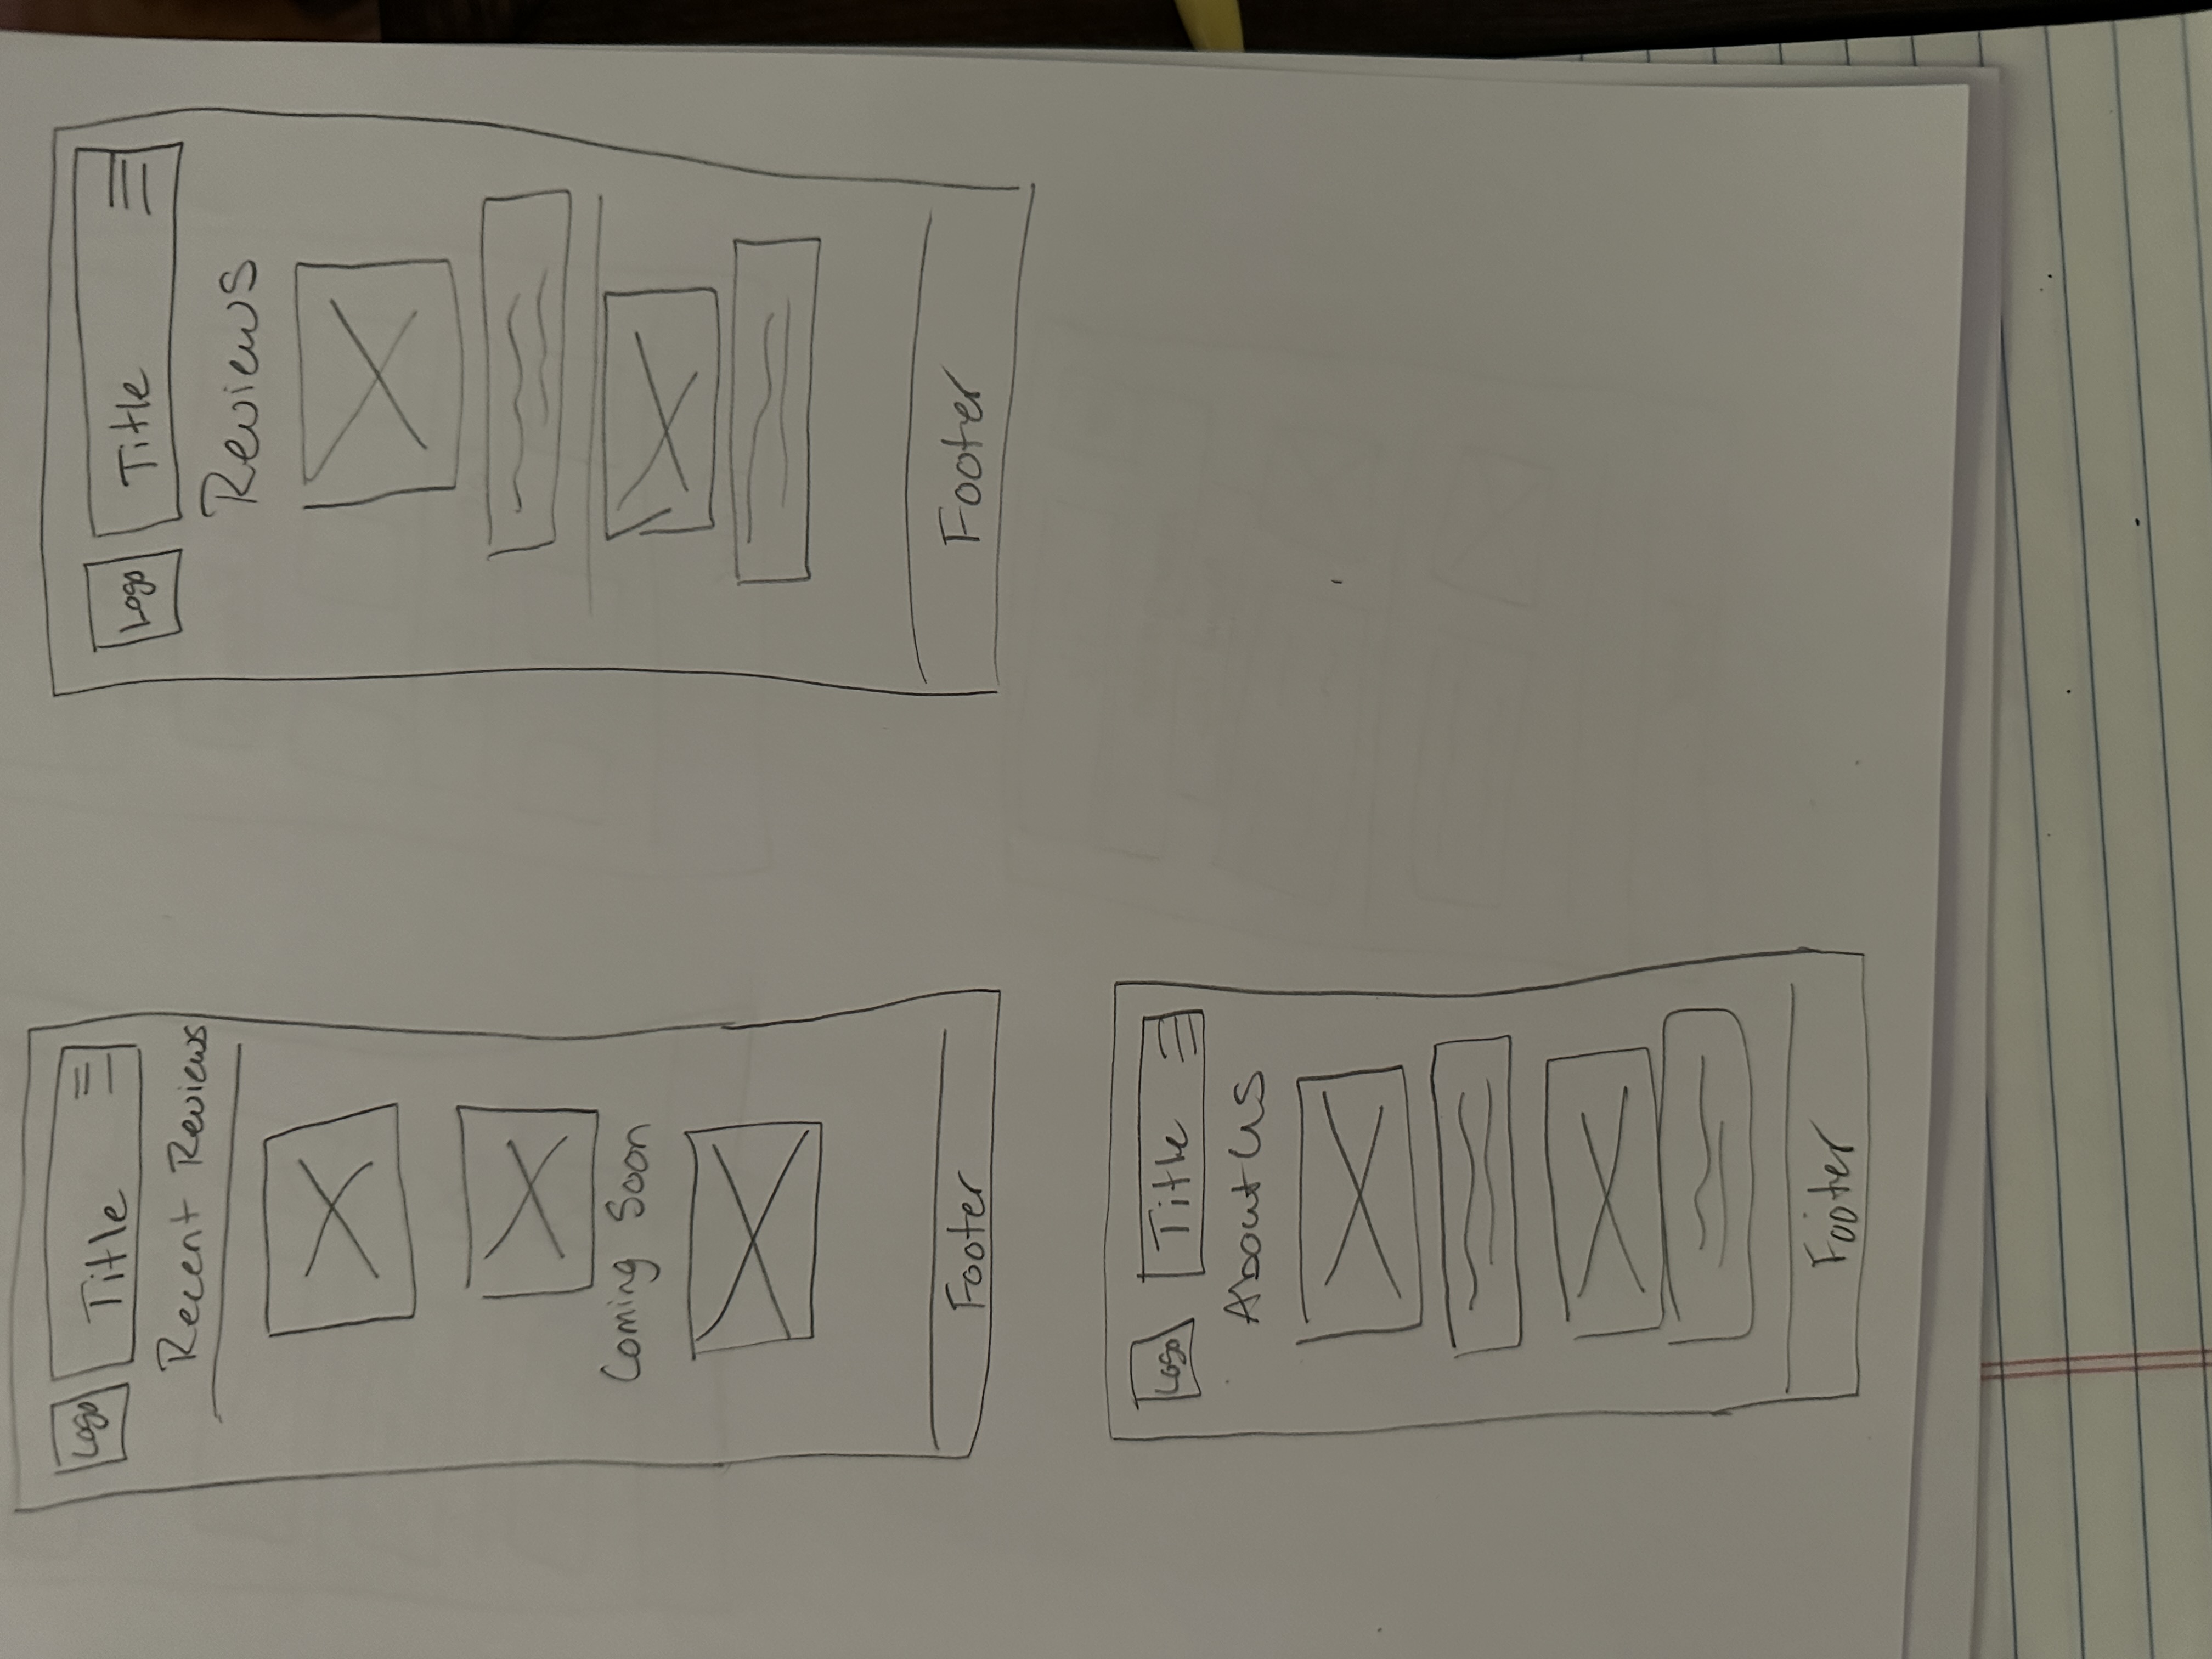 Logo Title
Recent Reviews
Coming Soon
Footer
Logo Title
Reviews
Footer
Logo Title
About Us
Footer